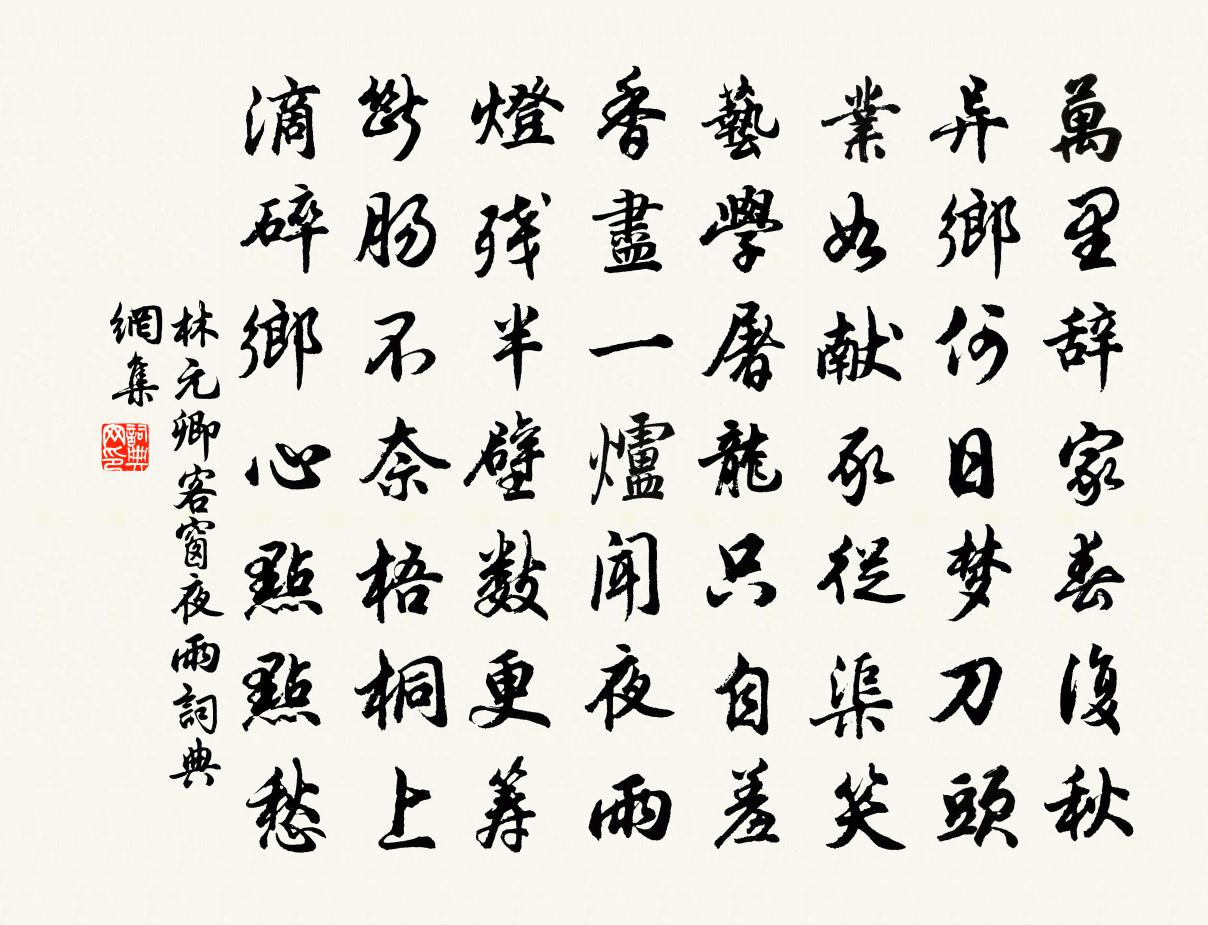 萬里辞家春復秋
异鄉何日梦刀頭
業如献豕從渠笑
藝學屠龍只自羞
香盡一爐聞夜雨
燈残半壁数更筹
斷肠不奈梧桐上
滴碎鄉心點點愁
林元卿客窗夜雨詞典
網集
詞典网印